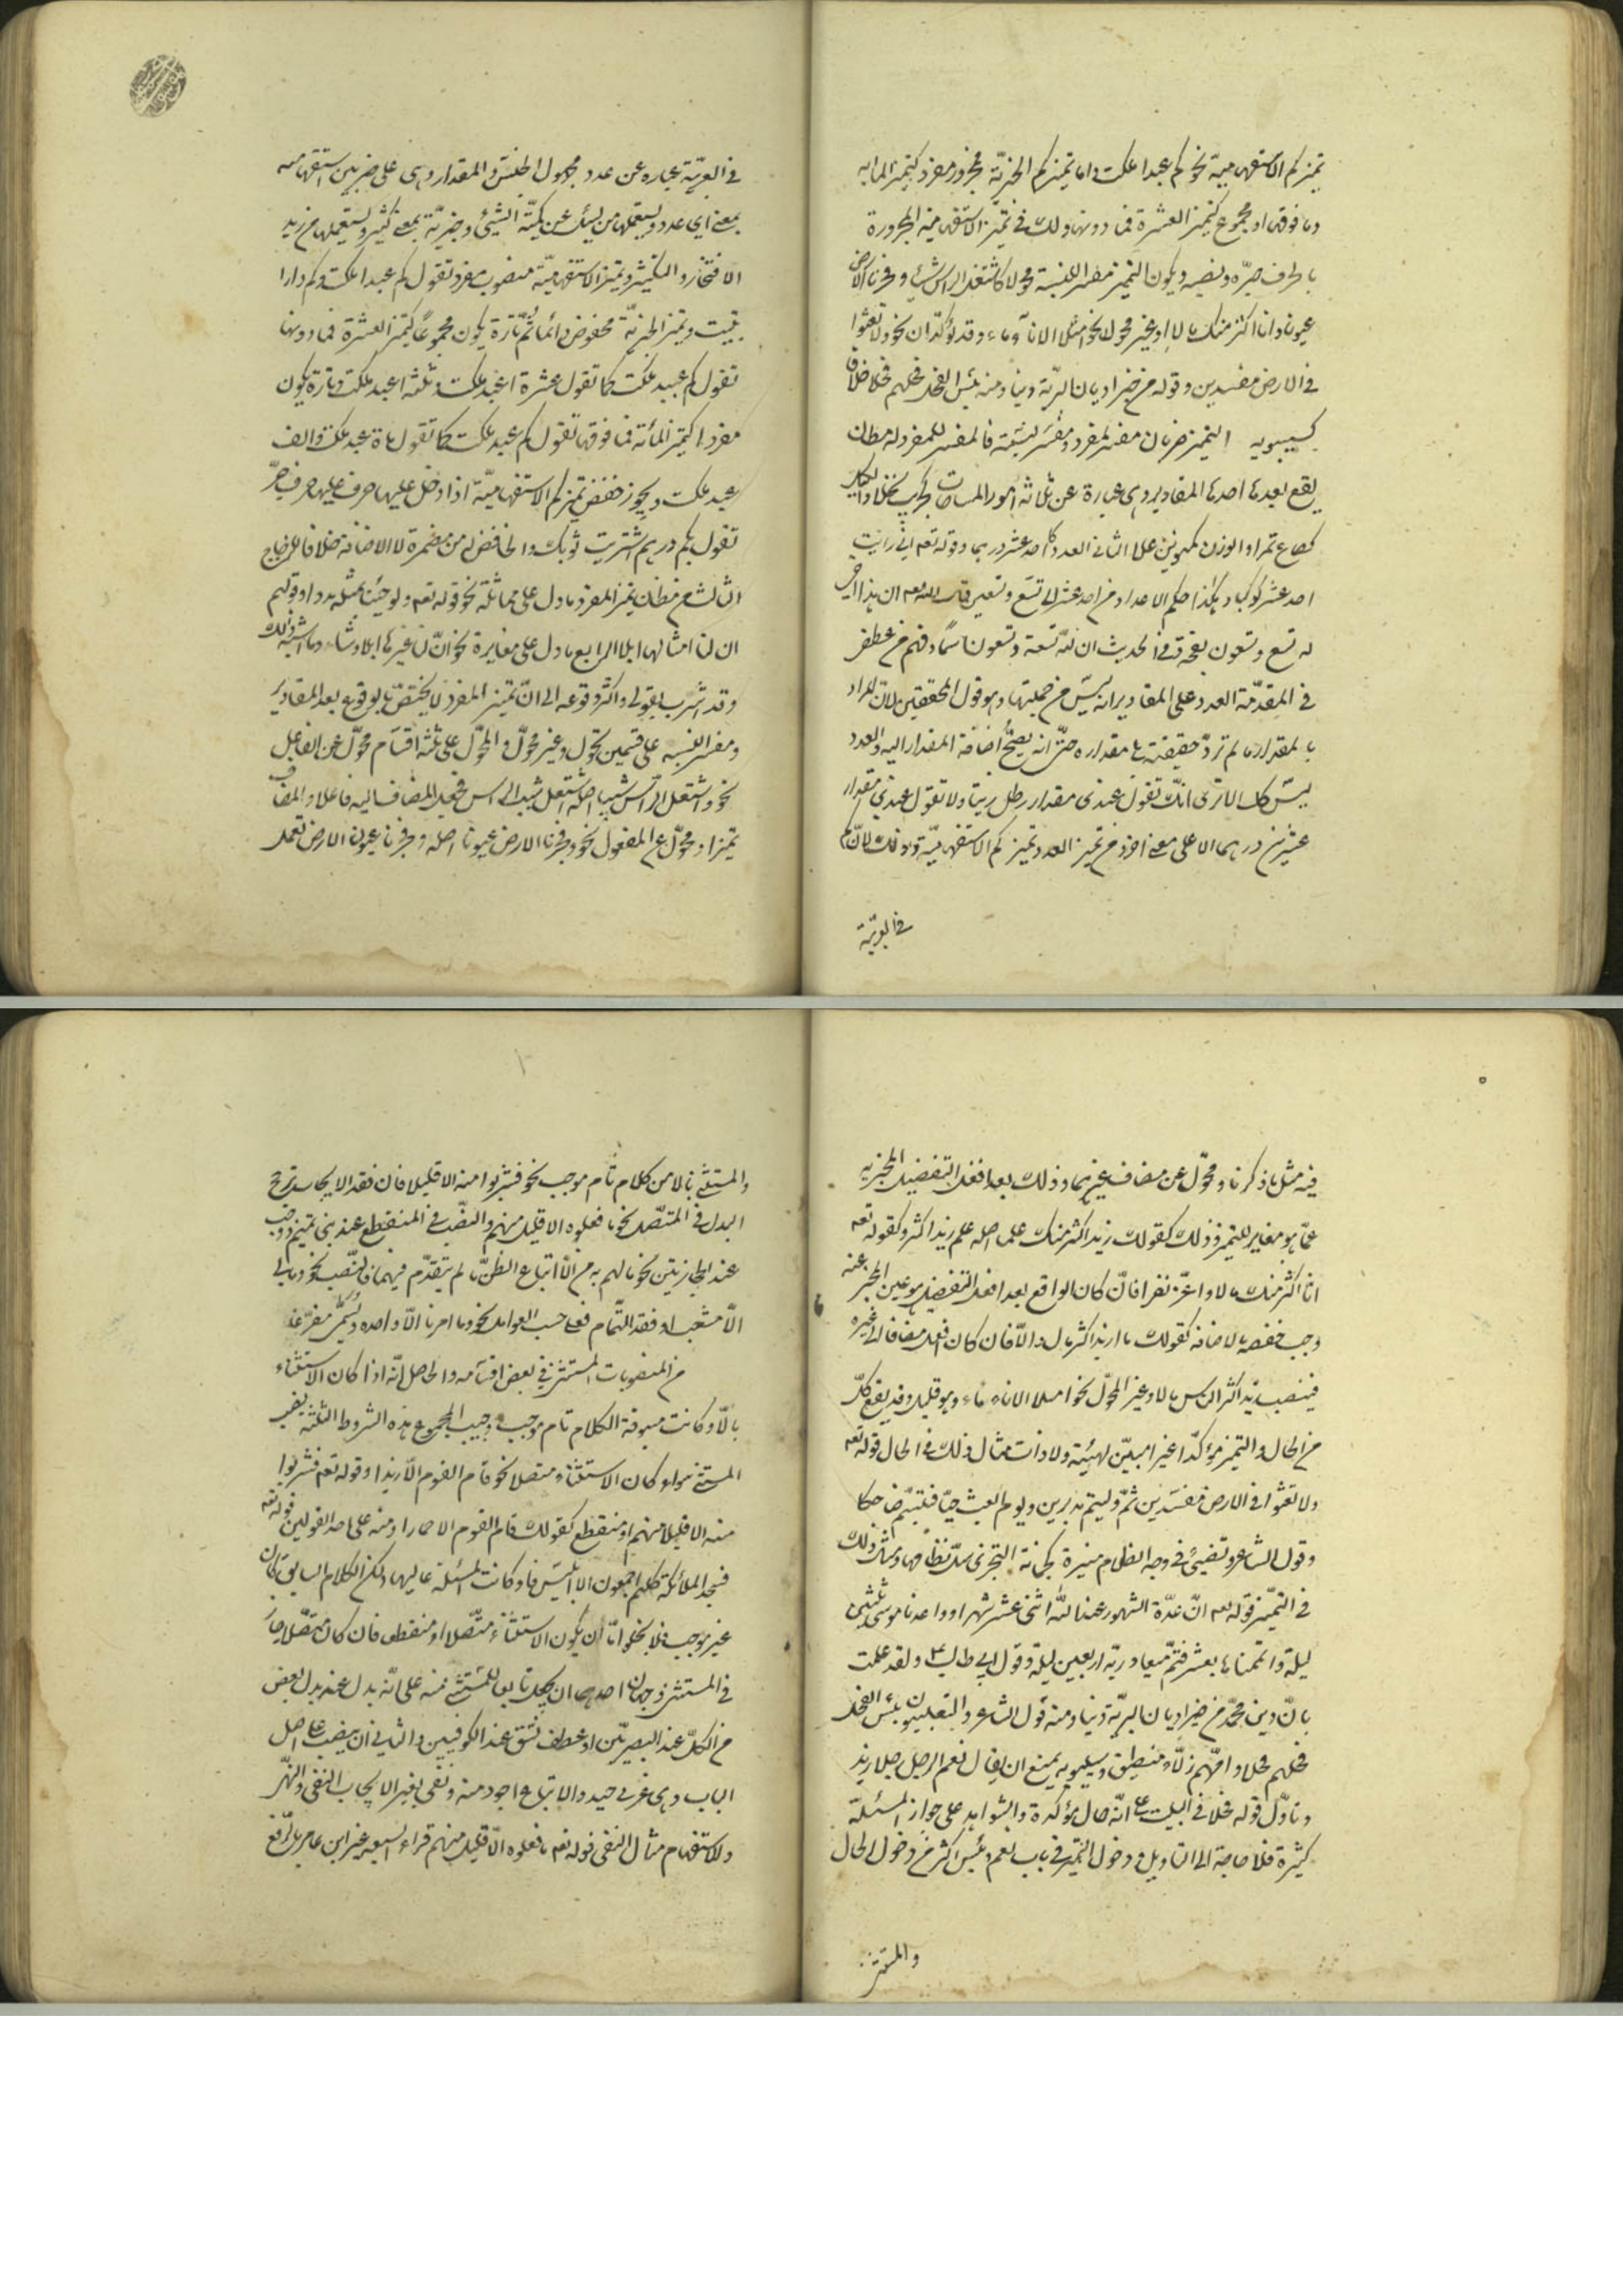 تميزكم الاستفهامية نحو كم عبدا ملكت واما تميزكم الخبرية فمجرور مفرد كتميز المايه
وما فوقها او مجموع كتميز العشرة فما دونها ولك في تميز الاستفهامية المجرورة
بالحرف جر ونصب ويكون التميز مفسرا للنسبة محولا كاشتعل الراس شيبا وفجرنا الارض
عيونا وانا اكثر منك مالا او غير محول نحو امتلا الاناء ماء وقد يؤكدان نحو ولا تعثوا
في الارض مفسدين وقوله من خير اديان البرية دينا ومنه بئس الفحل فحلهم فحلا خلافا
لسيبويه التميز ضربان مفسر لمفرد ومفسر لنسبة فالمفسر للمفرد له مظان
يقع بعدها احدها المقادير وهي عبارة عن ثلاثة امور المساحات كجريب نخلا والكيل
كصاع تمرا والوزن كمنوين عسلا الثاني العدد كاحد عشر درهما وقوله تعه اني رايت
احد عشر كوكبا وهكذا حكم الاعداد من احد عشر الى تسع وتسعين قال الله تعه ان هذا اخي
له تسع وتسعون نعجة وفي الحديث ان لله تسعة وتسعون اسما وفهم من عطفي
في المقدمة العدد على المقادير انه ليس من جملتها وهو قول المحققين لان المراد
بالمقدار ما لم ترد حقيقته بل مقداره حتى انه يصح اضافة المقدار اليه والعدد
ليس كك الا ترى انك تقول عندي مقدار رطل زيتا ولا تقول عندي مقدار
عشرين درهما الا على معنى اخر ومن تميز العدد تميز كم الاستفهامية وذلك لان كم
في العربية
في العربية عبارة عن عدد مجهول الجنس والمقدار وهي على ضربين استفهامية
بمعنى اي عدد ويستعملها من يسئل عن كمية الشيء وخبرية بمعنى كثير ويستعملها من يريد
الافتخار والتكثير وتميز الاستفهامية منصوب مفرد تقول كم عبدا ملكت وكم دارا
بنيت وتميز الخبرية مخفوض دائما ثم تارة يكون مجموعا كتميز العشرة فما دونها
تقول كم عبيد ملكت كما تقول عشرة اعبد ملكت وثلثة اعبد ملكت وتارة يكون
مفردا كتميز المأئة فما فوقها تقول كم عبد ملكت كما تقول مائة عبد ملكت والف
عبد ملكت ويجوز خفض تميز كم الاستفهامية اذا دخل عليها حرف جر
تقول بكم درهم اشتريت ثوبك والخافض له من مضمرة لا الاضافة خلافا للزجاج
الثالث من مظان تميز المفرد ما دل على مماثلة نحو قوله تعه ولو جئنا بمثله مددا وقولهم
ان لنا امثالها ابلا الرابع ما دل على مغايرة نحو ان لنا غيرها ابلا وشاء وما اشبه ذلك
وقد اشرت بقولي واكثر وقوعه الى ان تميز المفرد لا يختص بالوقوع بعد المقادير
ومفسر النسبة على قسمين محول وغير محول والمحول على ثلثة اقسام محول عن الفاعل
نحو واشتعل الراس شيبا اصله اشتعل شيب الراس فجعل المضاف اليه فاعلا والمضاف
تميزا ومحول عن المفعول نحو وفجرنا الارض عيونا اصله وفجرنا عيون الارض تفعل
فيه مثل ما ذكرنا ومحول عن مضاف غيرهما وذلك بعد افعل التفضيل المخبر به
عما هو مغاير للتميز وذلك كقولك زيد اكثر منك علما اصله علم زيد اكثر وكقوله تعه
انا اكثر منك مالا واعز نفرا فان كان الواقع بعد افعل التفضيل هو عين المخبر عنه
وجب خفضه بالاضافة كقولك مال زيد اكثر مال الا ان كان افعل مضافا الى غيره
فينصب زيد اكثر الناس مالا وغير المحول نحو امتلا الاناء ماء وهو قليل وقد يقع كل
من الحال والتميز مؤكدا غير مبين لهيئة ولا ذات مثال ذلك في الحال قوله تعه
ولا تعثوا في الارض مفسدين ثم وليتم مدبرين ويوم ابعث حيا فتبسم ضاحكا
وقول الشاعر وتضيئ في وجه الظلام منيرة كجمانة البحري سل نظامها ومثال ذلك
في التميز قوله تعه ان عدة الشهور عند الله اثنى عشر شهرا وواعدنا موسى ثلثين
ليلة واتممناها بعشر فتم ميقات ربه اربعين ليلة وقول ابي طالب ولقد علمت
بان دين محمد من خير اديان البرية دينا ومنه قول الشاعر والتغلبيون بئس الفحل
فحلهم فحلا وامهم زلاء منطيق وسيبويه يمنع ان يقال نعم الرجل رجلا زيد
وتاول قوله فحلا في البيت على انه حال مؤكدة والشواهد على جواز المسئلة
كثيرة فلا حاجة الى التاويل ودخول التميز في باب نعم وبئس اكثر من دخول الحال
والمستثنى
والمستثنى بالا من كلام تام موجب نحو فشربوا منه الا قليلا فان فقد الايجاب ترجح
البدل في المتصل نحو ما فعلوه الا قليل منهم والنصب في المنقطع عند بني تميم ووجب
عند الحجازيين نحو ما لهم به من علم الا اتباع الظن ما لم يتقدم فيهما فالنصب نحو ومالي
الا مشعب او فقد التمام فعلى حسب العوامل نحو وما امرنا الا واحدة ويسمى مفرغا
من المنصوبات المستثنى في بعض اقسامه والحاصل انه اذا كان الاستثناء
بالا وكانت مسبوقة الكلام تام موجب وجب بمجموع هذه الشروط الثلثة نصب
المستثنى سواء كان الاستثناء متصلا نحو قام القوم الا زيدا وقوله تعه فشربوا
منه الا قليلا منهم او منقطع كقولك قام القوم الا حمارا ومنه على احد القولين قوله تعه
فسجد الملائكة كلهم اجمعون الا ابليس فلو كانت المسئلة بحالها ولكن الكلام السابق كان
غير موجب فلا يخلو اما ان يكون الاستثناء متصلا او منقطعا فان كان متصلا جاز
في المستثنى وجهان احدهما ان يجعل تابعا للمستثنى منه على انه بدل عنه بدل بعض
من الكل عند البصريين او عطف نسق عند الكوفيين والثاني ان ينصب على اصل
الباب وهي عربي جيد والاتباع اجود منه ونعني بغير الايجاب النفي والنهي
والاستفهام مثال النفي قوله تعه ما فعلوه الا قليل منهم قراء السبعه غير ابن عامر بالرفع